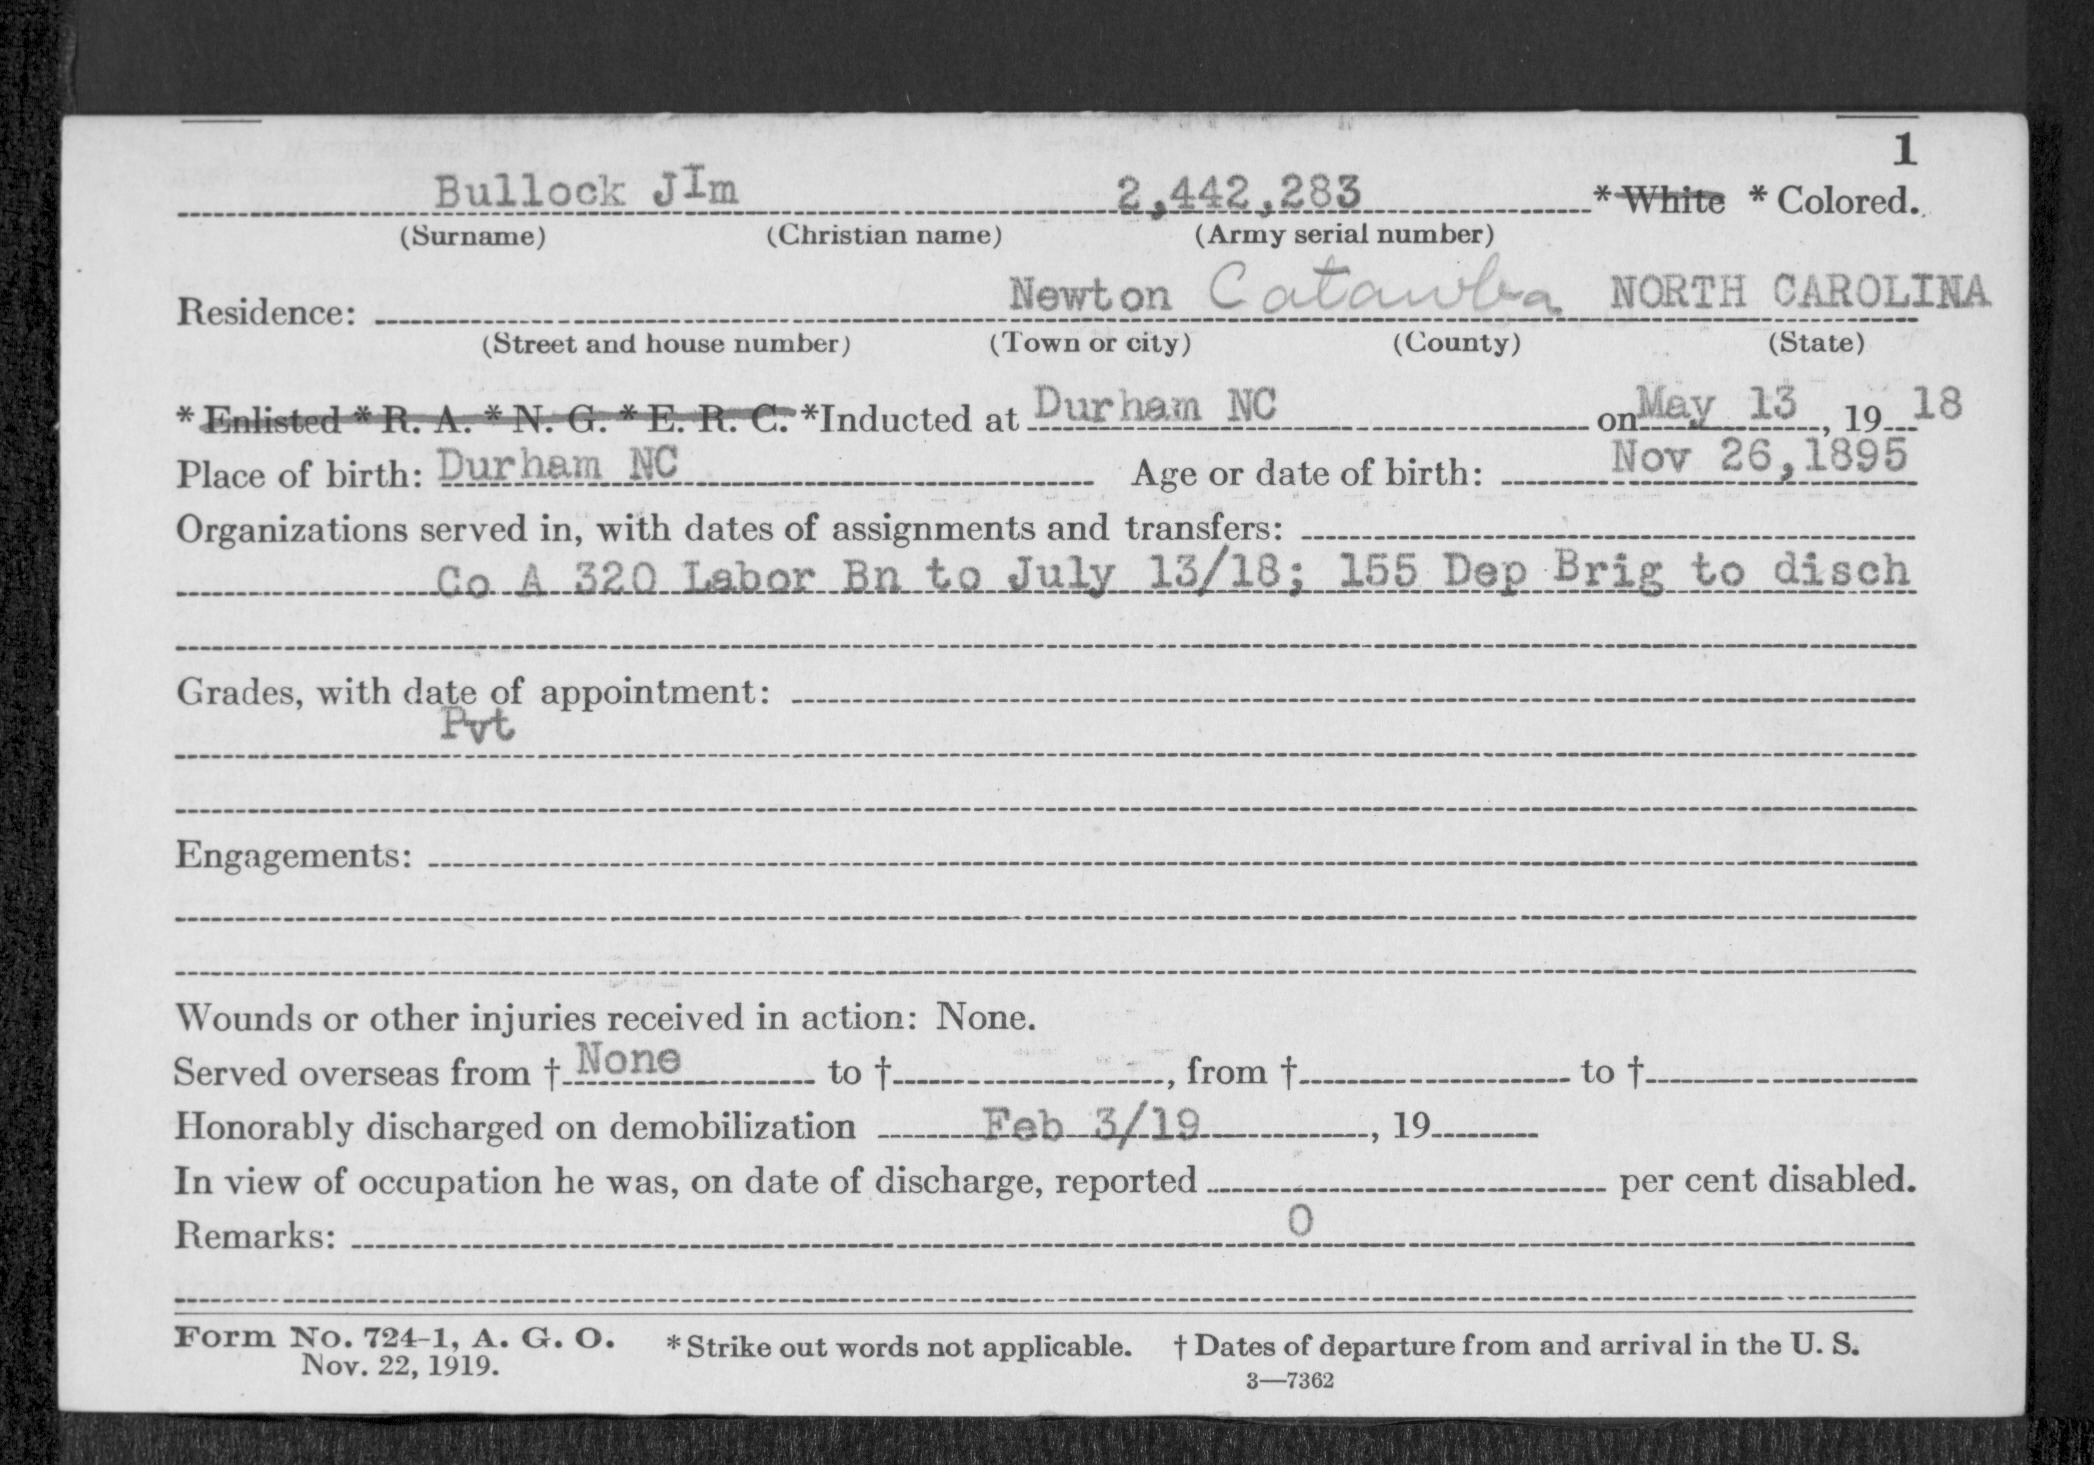 1
Bullock JIm 2,442,283 * White * Colored.
(Surname) (Christian name) (Army serial number)
Residence: Newton Catawba NORTH CAROLINA
(Street and house number) (Town or city) (County) (State)
* Enlisted * R. A. * N. G. * E. R. C. *Inducted at Durham NC on May 13, 19 18
Place of birth: Durham NC Age or date of birth: Nov 26,1895
Organizations served in, with dates of assignments and transfers:
Co A 320 Labor Bn to July 13/18; 155 Dep Brig to disch
Grades, with date of appointment:
Pvt
Engagements:
Wounds or other injuries received in action: None.
Served overseas from † None to †, from † to †
Honorably discharged on demobilization Feb 3/19, 19
In view of occupation he was, on date of discharge, reported per cent disabled.
0
Remarks:
Form No. 724-1, A. G. O. * Strike out words not applicable. † Dates of departure from and arrival in the U. S.
Nov. 22, 1919.
3—7362